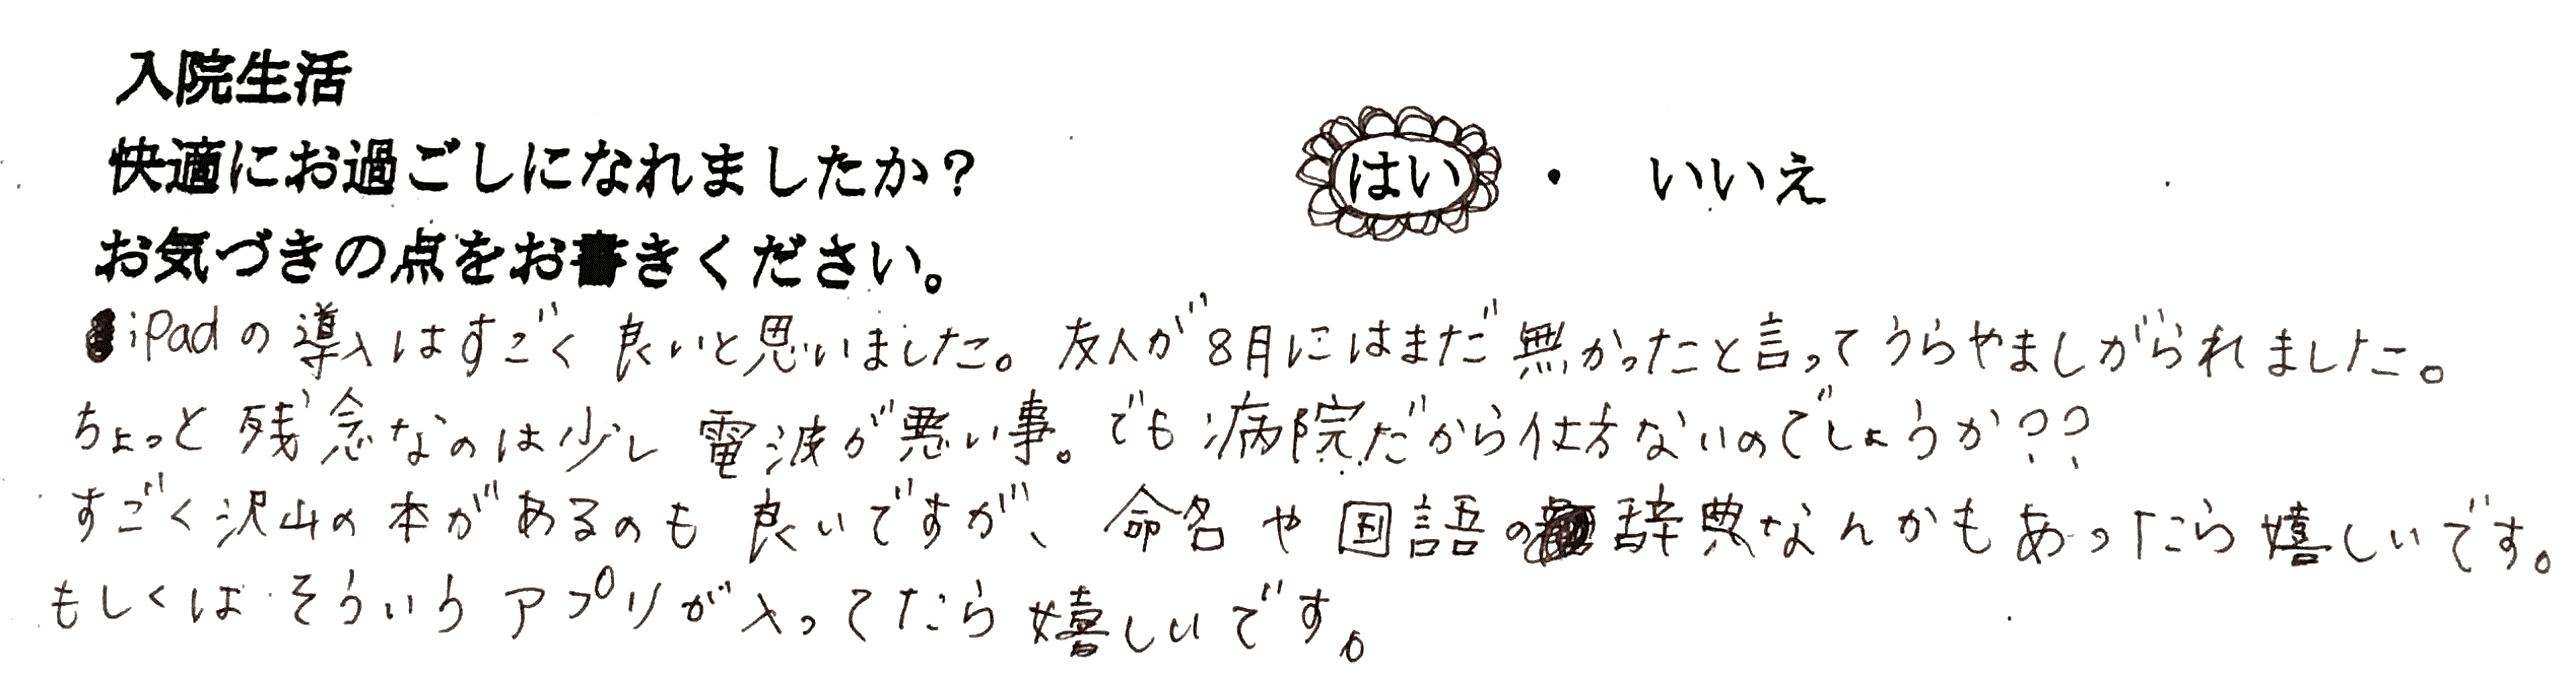 入院生活
快適にお過ごしになれましたか？ はい ・ いいえ
お気づきの点をお書きください。
iPadの導入はすごく良いと思いました。友人が8月にはまだ無かったと言ってうらやましがられました。
ちょっと残念なのは少し電波が悪い事。でも病院だから仕方ないのでしょうか??
すごく沢山の本があるのも良いですが、命名や国語の辞典なんかもあったら嬉しいです。
もしくはそういうアプリが入ってたら嬉しいです。